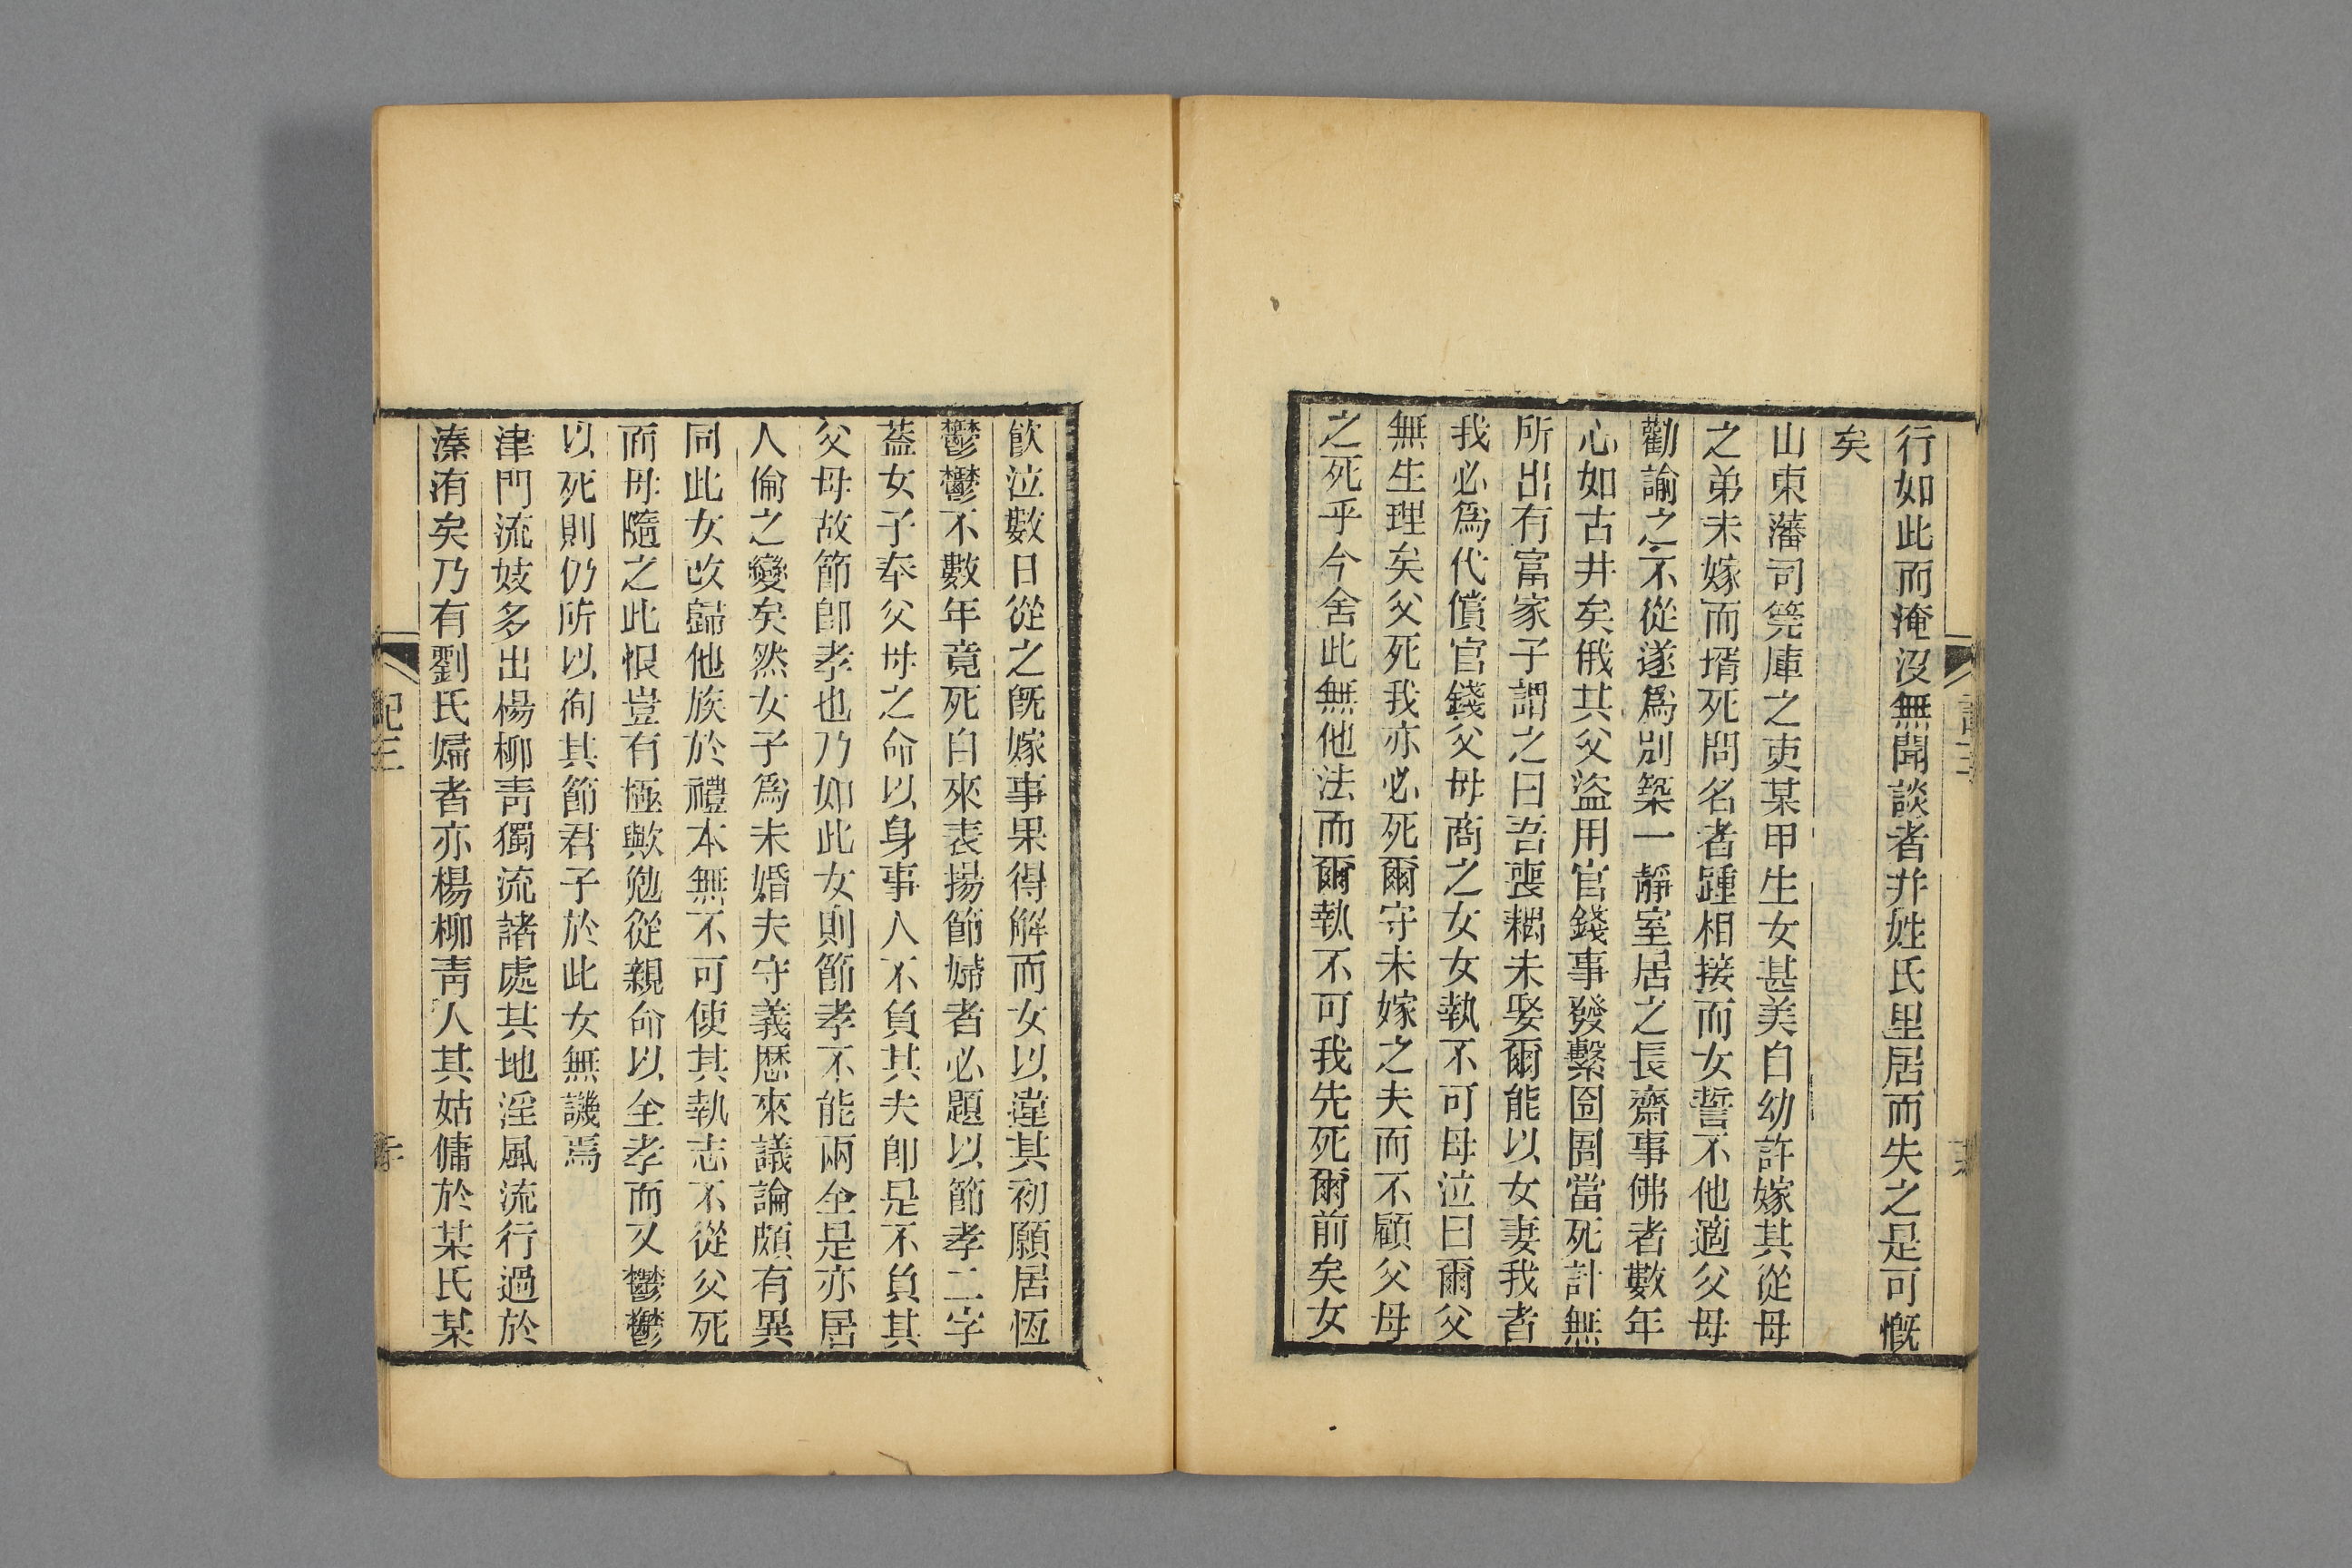 行如此而淹沒無聞談者幷姓氏里居而失之是可慨
矣
山東藩司筦庫之吏某甲生女甚美自幼許嫁其從母
之弟未嫁而壻死問名者踵相接而女誓不他適父母
勸諭之不從遂爲別築一靜室居之長齋事佛者數年
心如古井矣俄其父盜用官錢事發繫囹圄當死計無
所出有富家子謂之曰吾喪耦未娶爾能以女妻我者
我必爲代償官錢父母商之女女執不可母泣曰爾父
無生理矣父死我亦必死爾守未嫁之夫而不顧父母
之死乎今舍此無他法而爾執不可我先死爾前矣女
飮泣數日從之旣嫁事果得解而女以違其初願居恆
鬱鬱不數年竟死自來表揚節婦者必題以節孝二字
葢女子奉父母之命以身事人不負其夫卽是不負其
父母故節卽孝也乃如此女則節孝不能兩全是亦居
人倫之變矣然女子爲未婚夫守義歷來議論頗有異
同此女改歸他族於禮本無不可使其執志不從父死
而母隨之此恨豈有極歟勉從親命以全孝而又鬱鬱
以死則仍所以徇其節君子於此女無譏焉
津門流妓多出楊柳靑獨流諸處其地淫風流行過於
溱洧矣乃有劉氏婦者亦楊柳靑人其姑傭於某氏某
紀三